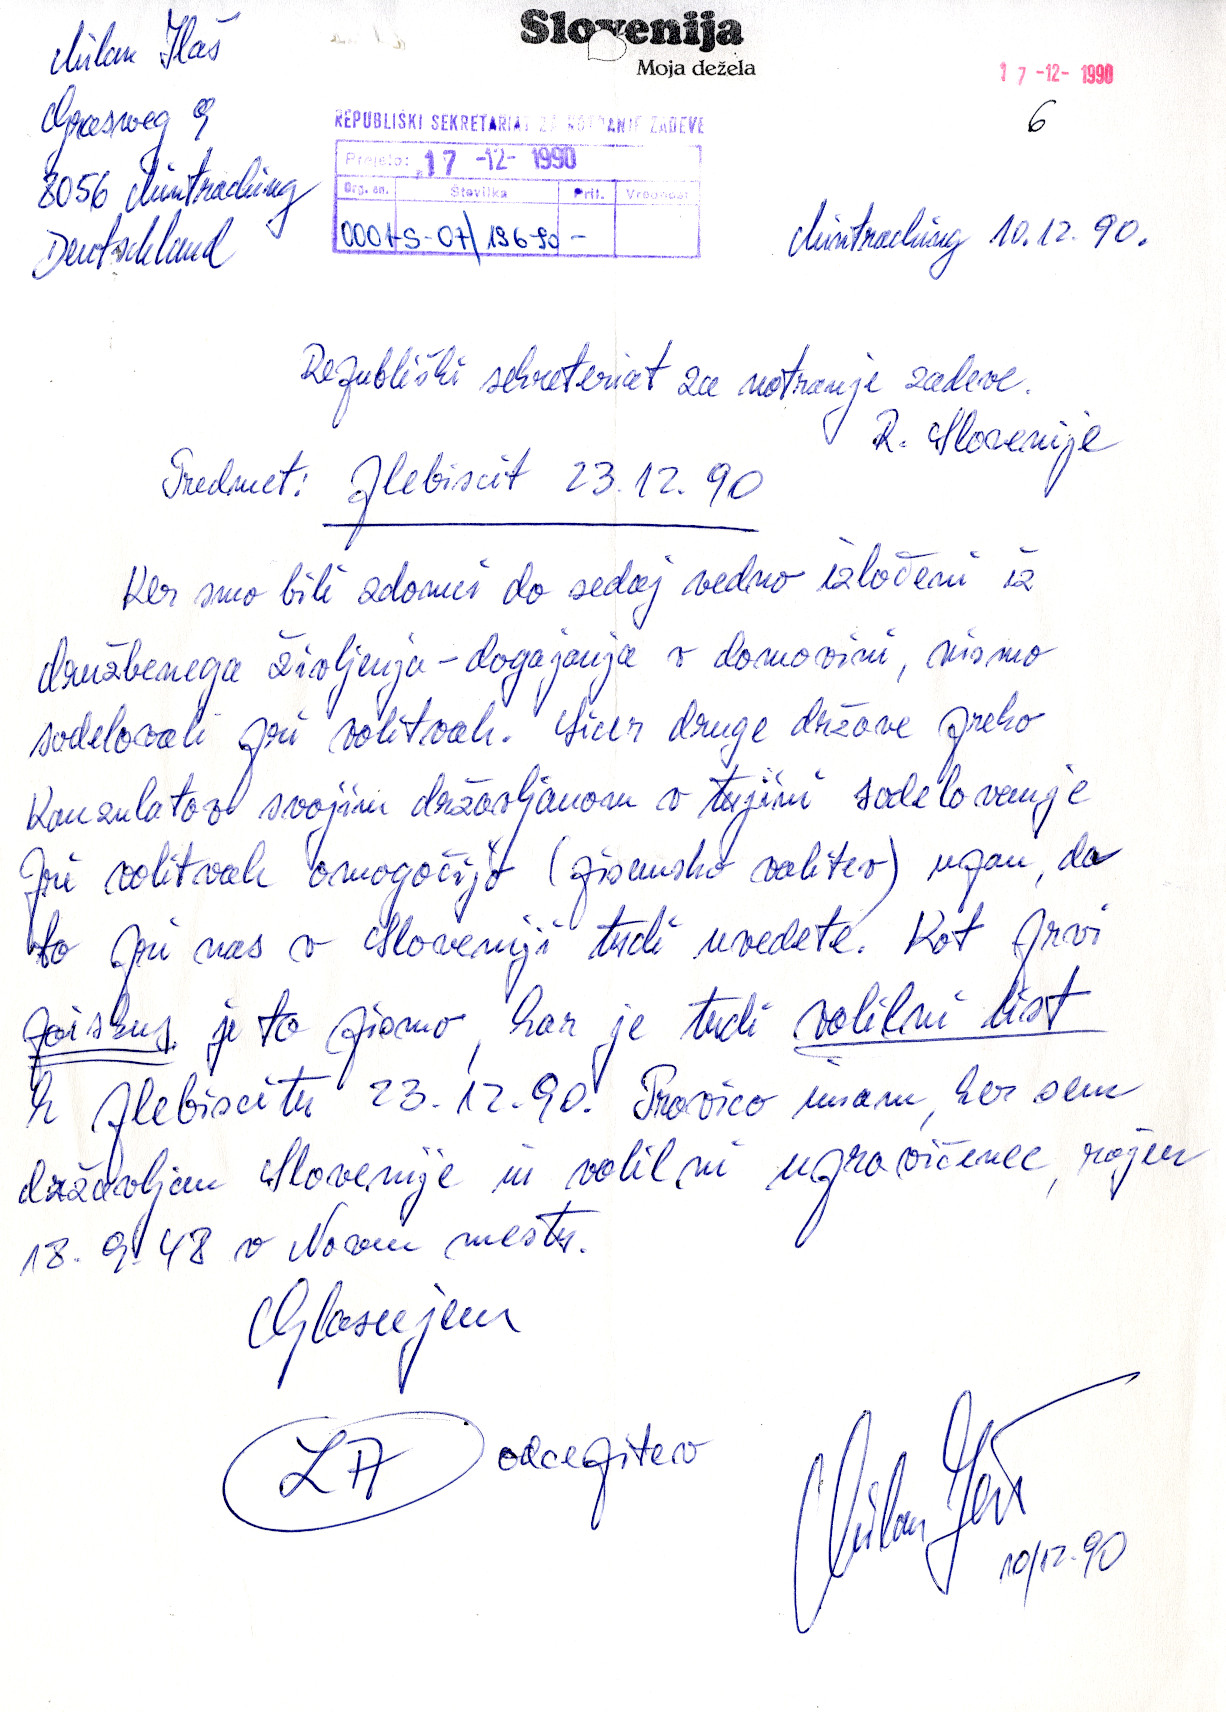 Slovenija
Moja dežela
Milan Ilaš
Grasweg 9
8056 Mintraching
Deutschland
17 -12- 1990
6
REPUBLIŠKI SEKRETARIAT ZA NOTRANJE ZADEVE
Prejeto: 17 -12- 1990
Org. en. Številka Pril. Vrednost
0001-S-07/196-90 -
Mintraching 10.12.90.
Republiški sekreteriat za notranje zadeve.
R. Slovenije
Predmet: plebiscit 23.12.90
Ker smo bili zdomci do sedaj vedno izločeni iz
družbenega življenja - dogajanja v domovini, nismo
sodelovali pri volitvah. Sicer druge države preko
Konzulatov svojim državljanom v tujini sodelovanje
pri volitvah omogočijo (pisemsko volitev) upam, da
to pri nas v Sloveniji tudi uvedete. Kot prvi
poiskus je to pismo, kar je tudi volilni list
k plebiscitu 23.12.90. Pravico imam, ker sem
državljan Slovenije in volilni upravičenec, rojen
18. 9. 48 v Novem mestu.
Glasujem
ZA odcepitev
Milan Ilaš
10/12.90